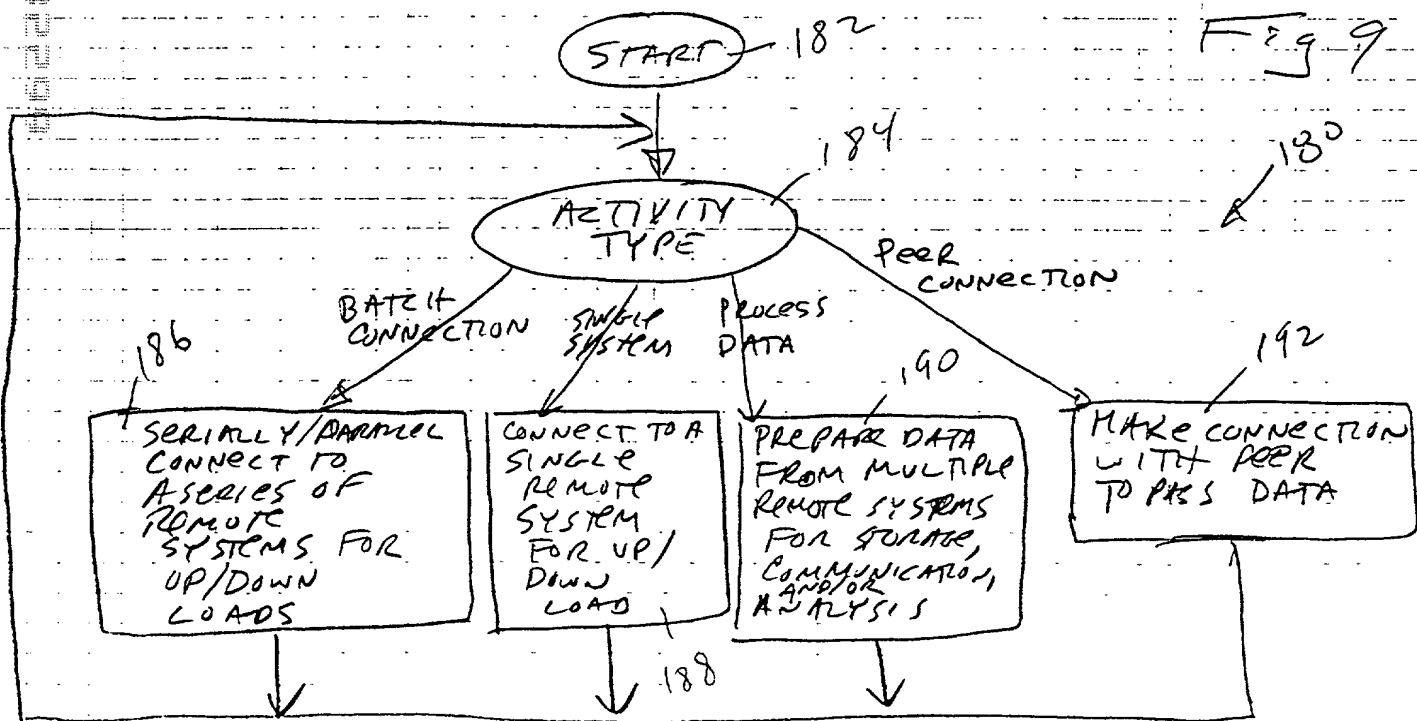 START
182
Fig 9
184
180
ACTIVITY
TYPE
BATCH
CONNECTION
SINGLE
SYSTEM
PROCESS
DATA
PEER
CONNECTION
186
SERIALLY/PARALLEL
CONNECT TO
A SERIES OF
REMOTE
SYSTEMS FOR
UP/DOWN
LOADS
CONNECT TO A
SINGLE
REMOTE
SYSTEM
FOR UP/
DOWN
LOAD
188
190
PREPARE DATA
FROM MULTIPLE
REMOTE SYSTEMS
FOR STORAGE,
COMMUNICATION,
AND/OR
ANALYSIS
192
MAKE CONNECTION
WITH PEER
TO PASS DATA